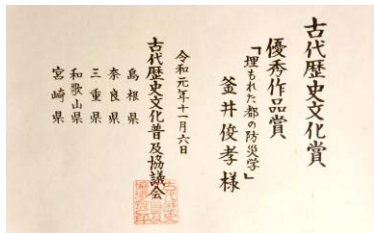 古代歴史文化賞
優秀作品賞
「埋もれた都の防災学」
釜井俊孝様
令和元年十一月六日
古代歴史文化普及協議会
島根県
奈良県
三重県
和歌山県
宮崎県